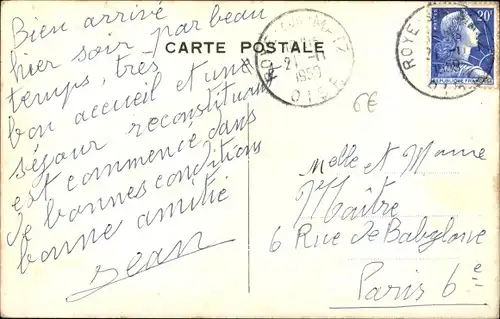 Bien arrivé
hier soir par beau
temps, très
bon accueil et une
séjour reconstituant
est commencé dans
de bonnes conditions
bonne amitié
Jean
CARTE POSTALE
ROYE-SUR-MATZ
21-11
1959
OISE
ROYE
20
6€
Melle et Mme
Maître
6 Rue de Babylone
Paris 6e